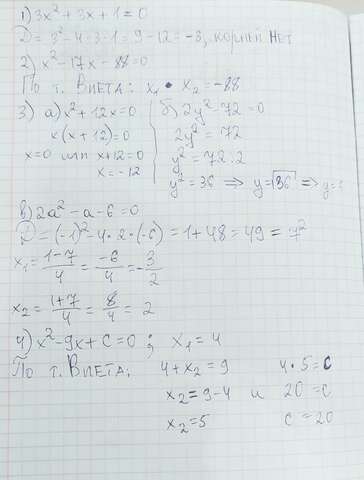 1) 3x² + 3x + 1 = 0
D = 3² - 4·3·1 = 9 - 12 = -3, корней нет
2) x² - 17x - 88 = 0
По т. Виета: x₁ · x₂ = -88
3) а) x² + 12x = 0
x(x + 12) = 0
x = 0 или x + 12 = 0
x = -12
б) 2y² - 72 = 0
2y² = 72
y² = 72:2
y² = 36 ⇒ y = √36 ⇒ y =
в) 2a² - a - 6 = 0
D = (-1)² - 4·2·(-6) = 1 + 48 = 49 = 7²
x₁ = (1-7)/4 = -6/4 = -3/2
x₂ = (1+7)/4 = 8/4 = 2
4) x² - 9x + C = 0; x₁ = 4
По т. Виета: 4 + x₂ = 9 4·5 = C
x₂ = 9 - 4 и 20 = C
x₂ = 5 C = 20